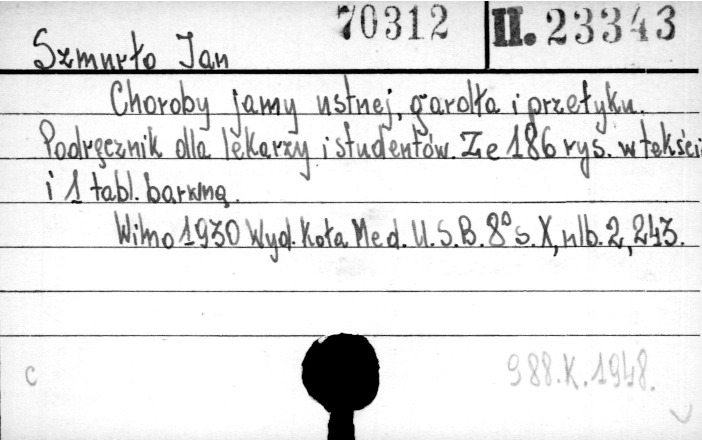 70312 II. 23343
Szmurło Jan
Choroby jamy ustnej, gardła i przełyku.
Podręcznik dla lekarzy i studentów. Ze 186 rys. w tekści
i 1 tabl. barwną.
Wilno 1930 Wyd. Koła Med. U.S.B. 8° s. X, nlb. 2, 243.
c 988.K.1948.